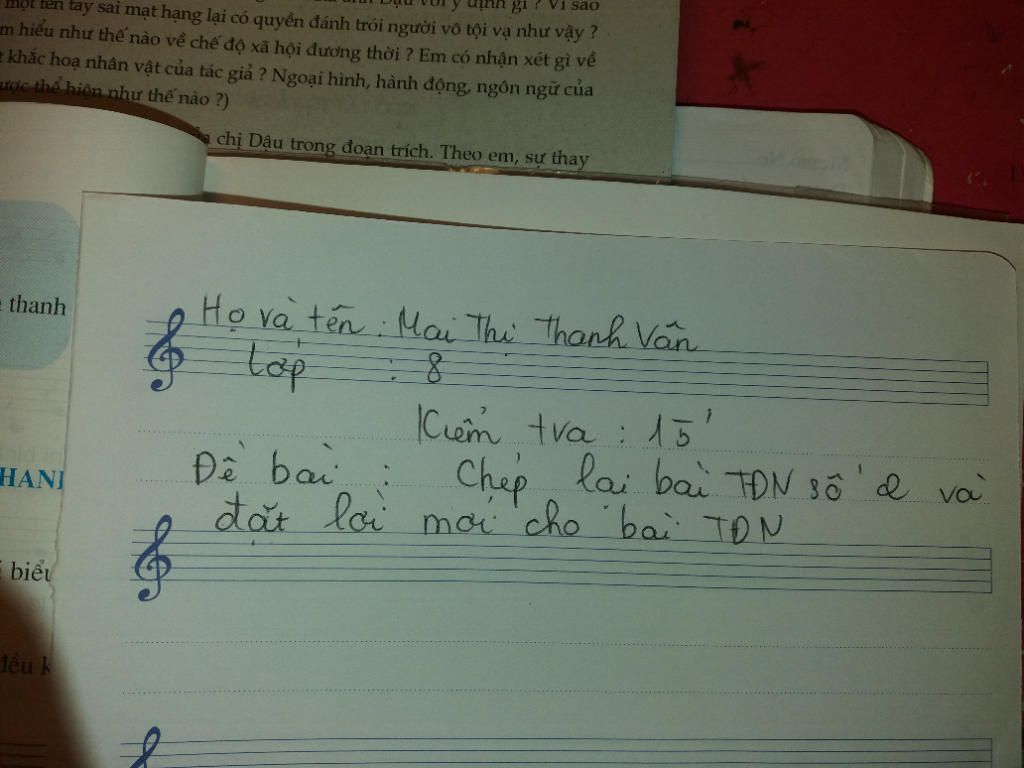 một tên tay sai mạt hạng lại có quyền đánh trói người vô tội vạ như vậy ?
hiểu như thế nào về chế độ xã hội đương thời ? Em có nhận xét gì về
khắc hoạ nhân vật của tác giả ? Ngoại hình, hành động, ngôn ngữ của
được thể hiện như thế nào ?)
chị Dậu trong đoạn trích. Theo em, sự thay
thanh
Họ và tên : Mai Thị Thanh Vân
Lớp : 8
Kiểm tra : 15'
Đề bài : Chép lại bài TĐN số 2 và
đặt lời mới cho bài TĐN
HANH
biểu
đều k